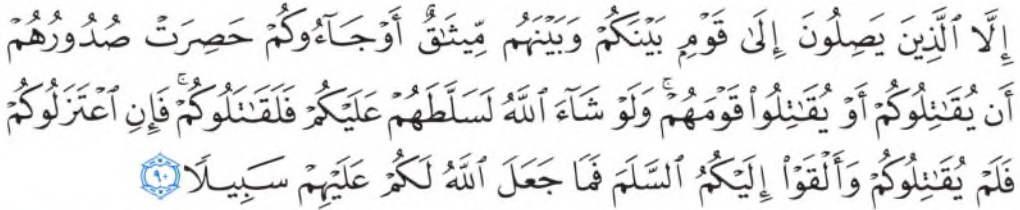 إِلَّا ٱلَّذِينَ يَصِلُونَ إِلَىٰ قَوْمِۭ بَيْنَكُمْ وَبَيْنَهُم مِّيثَـٰقٌ أَوْ جَآءُوكُمْ حَصِرَتْ صُدُورُهُمْ
أَن يُقَـٰتِلُوكُمْ أَوْ يُقَـٰتِلُوا۟ قَوْمَهُمْ ۚ وَلَوْ شَآءَ ٱللَّهُ لَسَلَّطَهُمْ عَلَيْكُمْ فَلَقَـٰتَلُوكُمْ ۚ فَإِنِ ٱعْتَزَلُوكُمْ
فَلَمْ يُقَـٰتِلُوكُمْ وَأَلْقَوْا۟ إِلَيْكُمُ ٱلسَّلَمَ فَمَا جَعَلَ ٱللَّهُ لَكُمْ عَلَيْهِمْ سَبِيلًا ٩٠